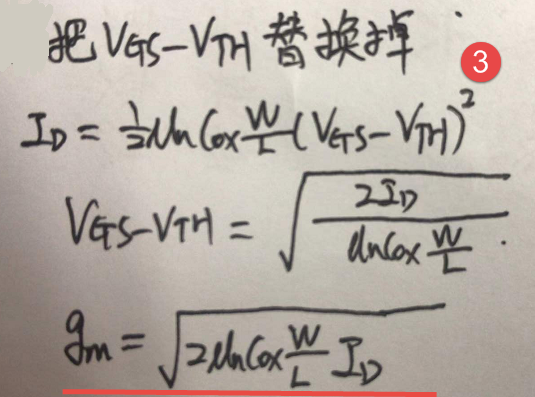 把 VGS-VTH 替换掉
3
ID = 1/2 μn Cox W/L (VGS-VTH)²
VGS-VTH = √(2ID / (μnCox W/L))
gm = √(2μnCox W/L ID)